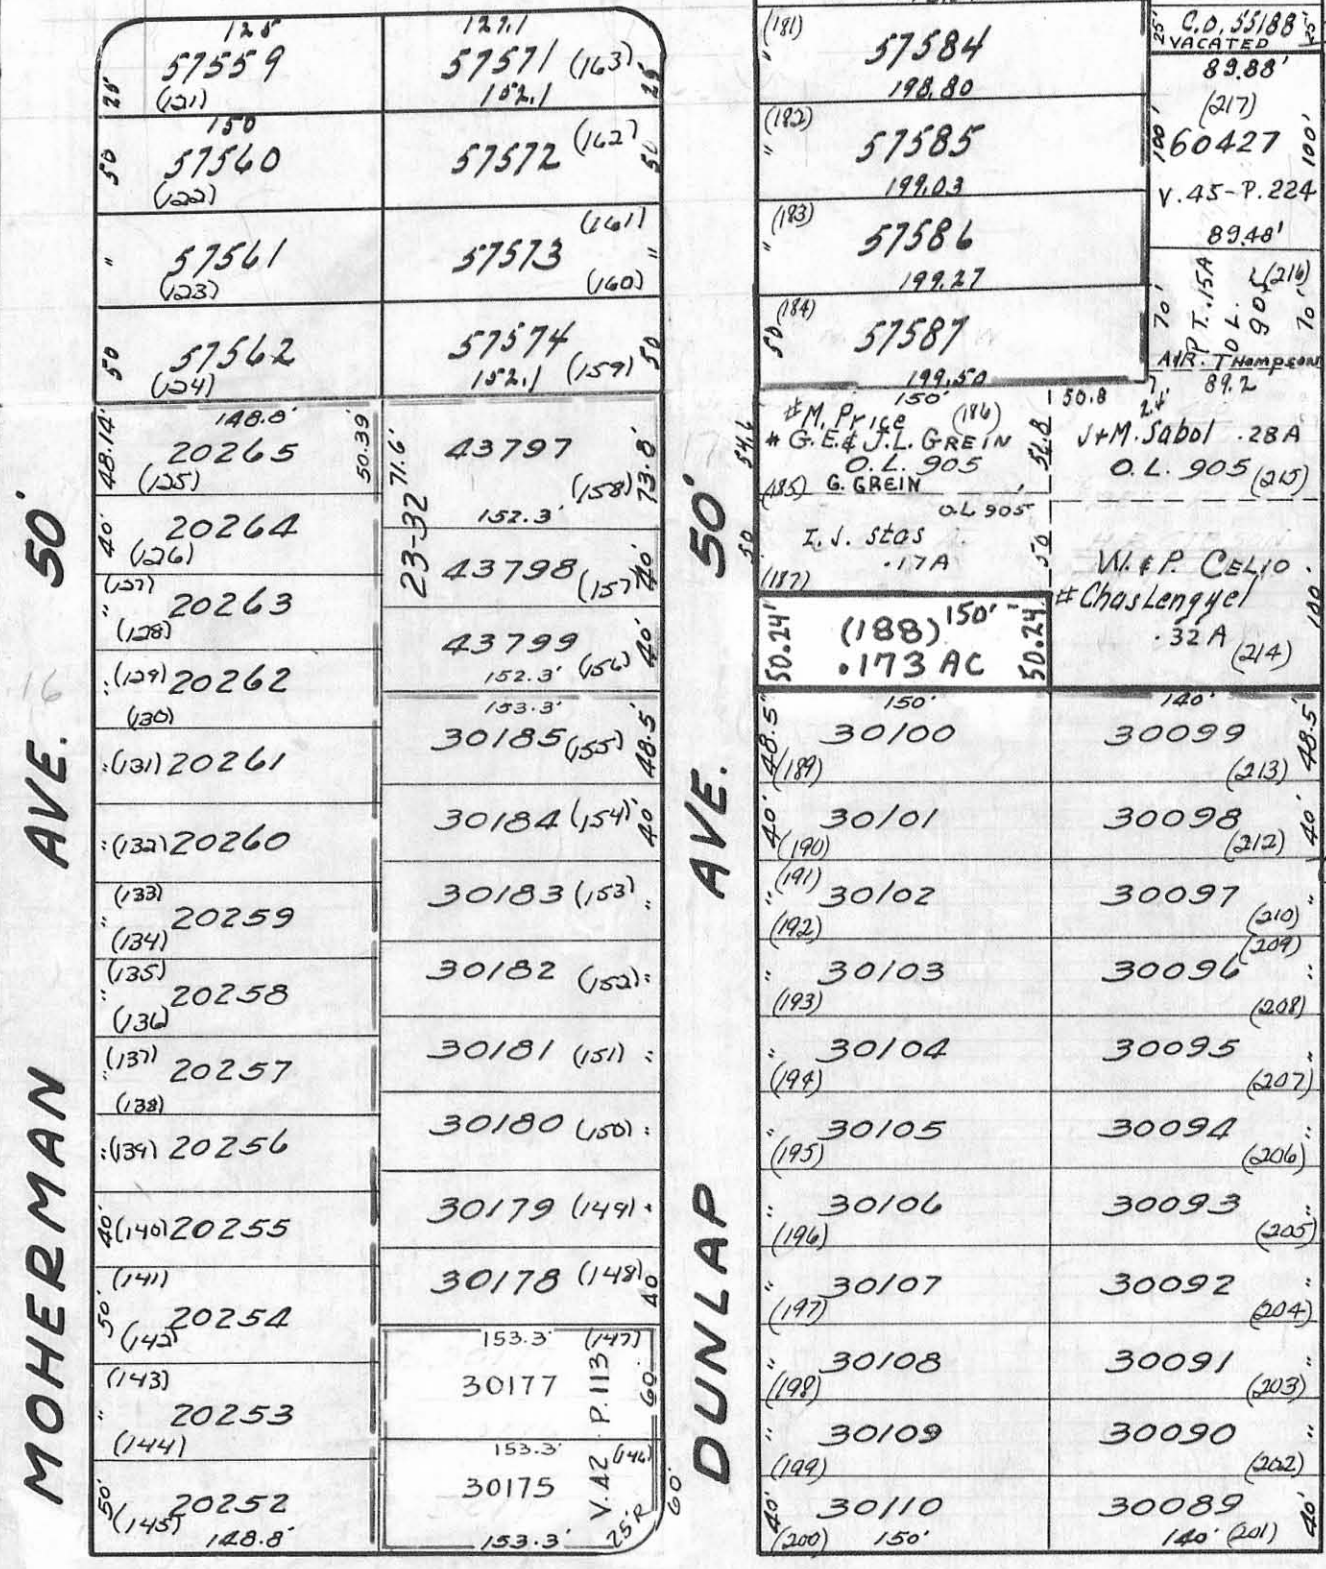 MOHERMAN AVE. 50'
125
57559
25'
(121)
150
57560
50
(122)
57561
"
(123)
57562
50
(124)
148.8'
48.14'
20265
50.39'
(125)
40'
20264
(126)
(127)
" 20263
(128)
" (129) 20262
(130)
" (131) 20261
" (132) 20260
(133)
" 20259
(134)
(135)
" 20258
(136)
(137)
" 20257
(138)
" (139) 20256
40' (140) 20255
(141)
50' 20254
(142)
(143)
" 20253
(144)
50' 20252
(145)
148.8'
127.1
57571 (163)
25
152.1
57572 (162)
50
(161)
57573 "
(160)
57574
50
152.1 (159)
71.6'
43797
(158) 73.8'
152.3'
23-32
43798 (157) 40'
43799
152.3' (156) 40'
153.3'
30185 (155) 48.5'
30184 (154) 40'
30183 (153) "
30182 (152) "
30181 (151) "
30180 (150) "
30179 (149) "
30178 (148) 40
153.3' (147)
30177
60'
V.42 P.113
153.3' (146)
30175
153.3' 25'R
60'
DUNLAP AVE. 50'
(181)
" 57584
198.80
(182)
" 57585
199.03
(183)
" 57586
199.27
(184)
50 57587
199.50
150'
54.6
#M. Price (186)
# G.E.& J.L. GREIN
O.L. 905
(185) G. GREIN
O.L 905
50
I.J. stas
.17A
50
(187)
50.24'
(188) 150'
.173 AC
50.24'
150'
48.5' 30100
(189)
40' 30101
(190)
(191)
" 30102
(192)
" 30103
(193)
" 30104
(194)
" 30105
(195)
" 30106
(196)
" 30107
(197)
" 30108
(198)
" 30109
(199)
40' 30110
(200) 150'
25' C.D. 55188
VACATED
89.88'
(217)
100' 60427 100'
V.45-P.224
89.48'
70' P T. .15A
O L. 905 (216) 70'
A.R. Thompson
89.2
50.8
J+M. Sabol .28A
O.L. 905 (215)
W. & P. CELIO
# Chas Lengyel
.32 A
(214)
100
140'
30099 48.5'
(213)
30098 40'
(212)
30097 "
(210)
(209)
30096 "
(208)
30095 "
(207)
30094 "
(206)
30093 "
(205)
30092 "
(204)
30091 "
(203)
30090 "
(202)
30089 40'
140' (201)